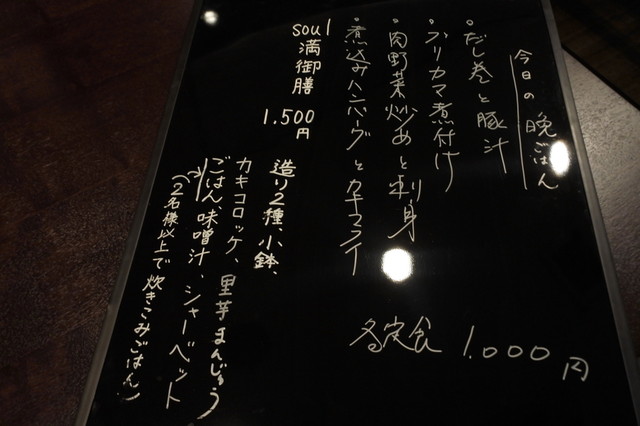 今日の晩ごはん
・だし巻と豚汁
・ブリカマ煮付け
・肉野菜炒めと刺身
・煮込みハンバーグとカキフライ
各定食 1.000円
soul満御膳
1.500円
造り2種、小鉢、
カキコロッケ、里芋まんじゅう
ごはん、味噌汁、シャーベット
(2名様以上で炊きこみごはん)